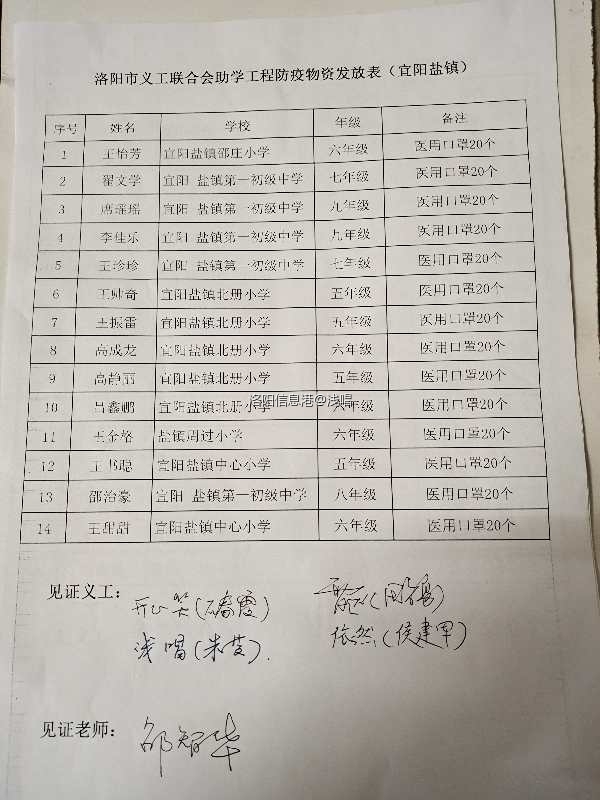 洛阳市义工联合会助学工程防疫物资发放表（宜阳盐镇）
序号 姓名 学校 年级 备注
1 王怡芳 宜阳盐镇邵庄小学 六年级 医用口罩20个
2 翟文学 宜阳 盐镇第一初级中学 七年级 医用口罩20个
3 席瑶瑶 宜阳 盐镇第一初级中学 九年级 医用口罩20个
4 李佳乐 宜阳 盐镇第一初级中学 九年级 医用口罩20个
5 王珍珍 宜阳 盐镇第一初级中学 七年级 医用口罩20个
6 王帅奇 宜阳盐镇北册小学 五年级 医用口罩20个
7 王振雷 宜阳盐镇北册小学 五年级 医用口罩20个
8 高成龙 宜阳盐镇北册小学 六年级 医用口罩20个
9 高静丽 宜阳盐镇北册小学 五年级 医用口罩20个
10 吕鑫鹏 宜阳盐镇北册小学 六年级 医用口罩20个
洛阳信息港@浅唱
11 王金格 盐镇周过小学 六年级 医用口罩20个
12 王书聪 宜阳盐镇中心小学 五年级 医用口罩20个
13 邵治豪 宜阳 盐镇第一初级中学 八年级 医用口罩20个
14 王甜甜 宜阳盐镇中心小学 六年级 医用口罩20个
见证义工：
开心笑
浅唱
依然(侯建军)
见证老师：
邵智华